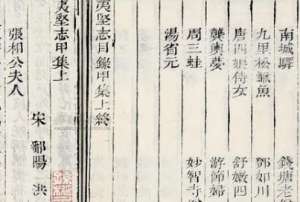 南城驛 錢塘老
九里松鰍魚 鄧如川
唐四娘侍女 舒嫩四
龔輿夢 節婦
周三蛙 妙智寺
湯省元
夷堅志目錄甲集上終
夷堅志甲集上
宋 鄱陽 洪
張相公夫人